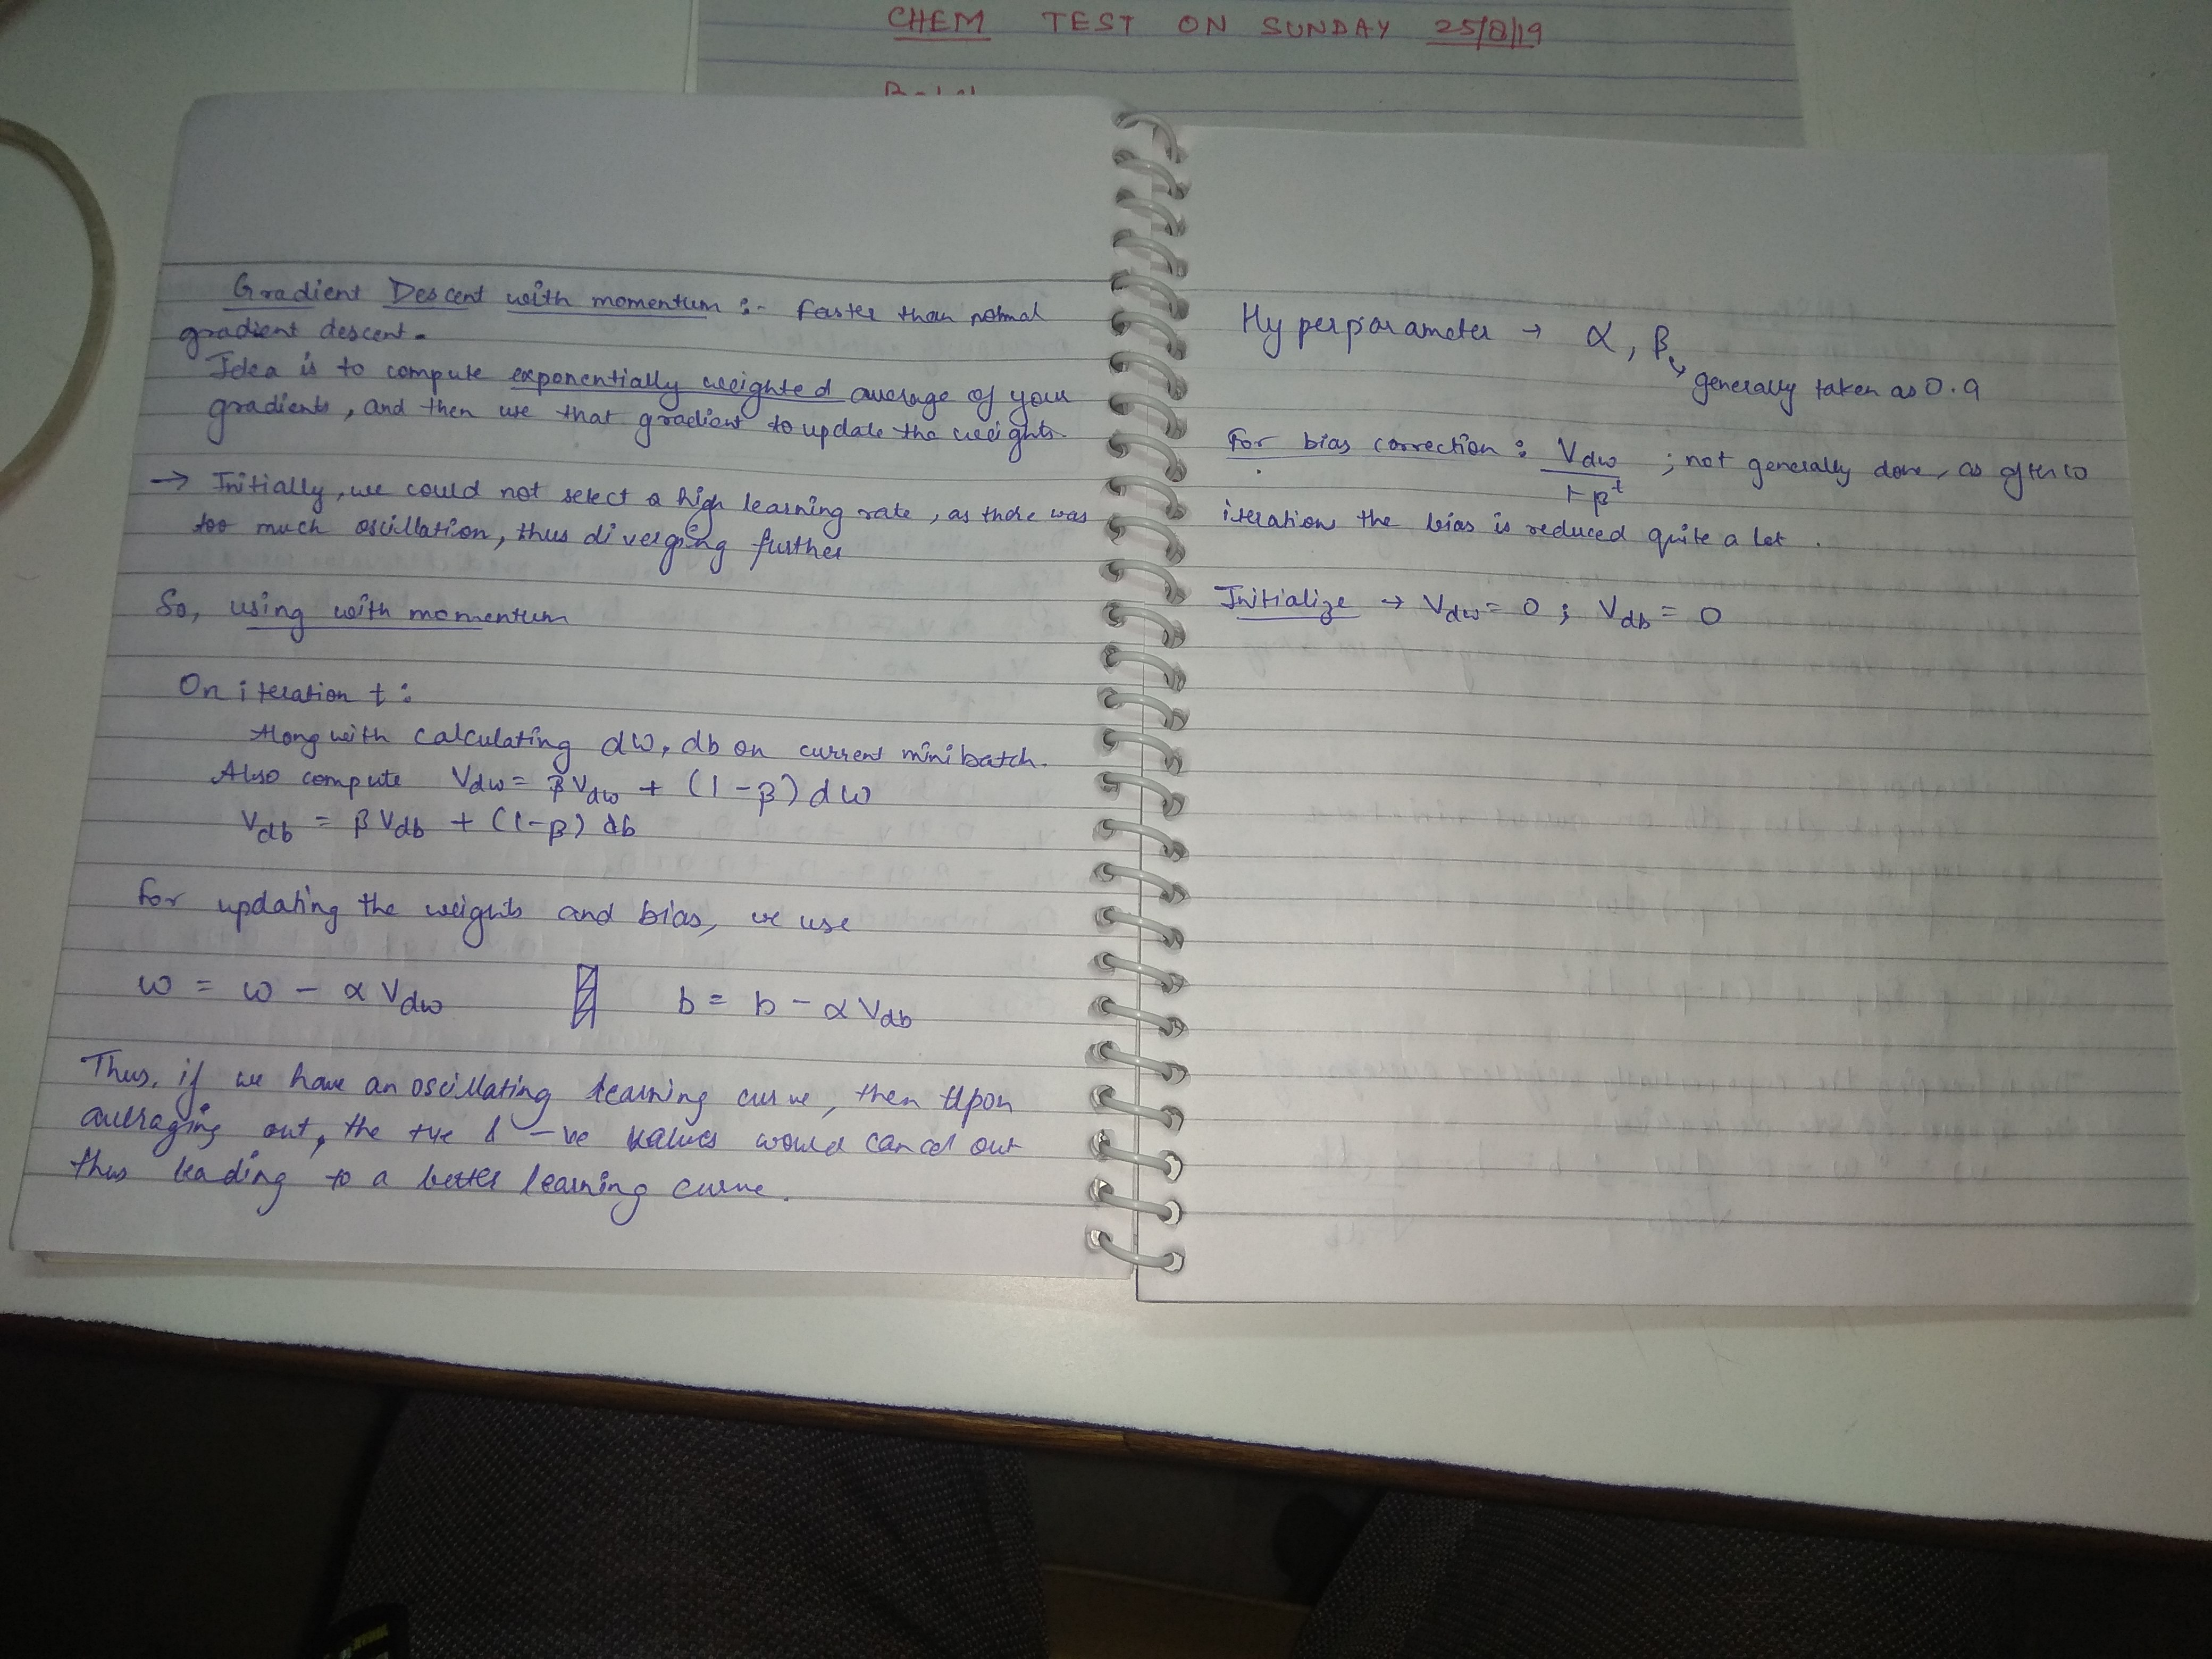 CHEM TEST ON SUNDAY 25/8/19
Gradient Descent with momentum :- faster than normal
gradient descent.
Idea is to compute exponentially weighted average of your
gradients, and then use that gradient to update the weights.
→ Initially, we could not select a high learning rate, as there was
too much oscillation, thus diverging further
So, using with momentum
On iteration t :
Along with calculating dw, db on current mini batch.
Also compute Vdw = βVdw + (1-β) dw
Vdb = βVdb + (1-β) db
For updating the weights and bias, we use
w = w - αVdw b = b - αVdb
Thus, if we have an oscillating learning curve, then upon
averaging out, the +ve & -ve values would cancel out
thus leading to a better learning curve.
Hyperparameter → α, β
↳ generally taken as 0.9
For bias correction : Vdw ; not generally done, as after 10
1-β^t
iterations the bias is reduced quite a lot.
Initialize → Vdw = 0 ; Vdb = 0